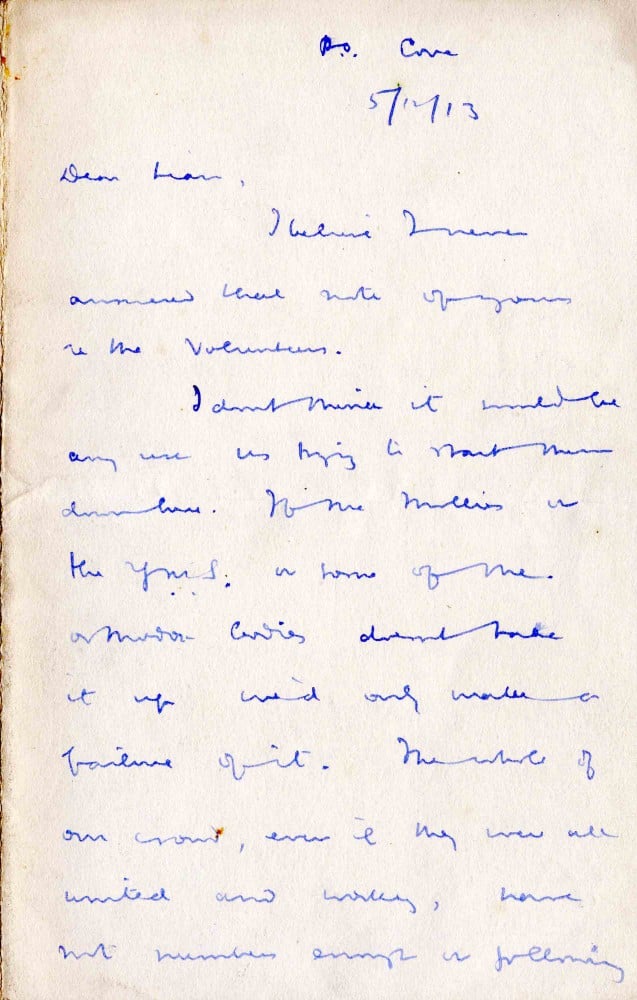 P.O. Cove
5/12/13
Dear Liam,
I believe I never
answered that note of yours
re the Volunteers.
I dont think it would be
any use us trying to start them
down here. If the Mollies or
the Y.M.S. or some of the
orthodox bodies doesnt take
it up we'd only make a
failure of it. The whole of
our crowd, even if they were all
united and working, have
not numbers enough or following